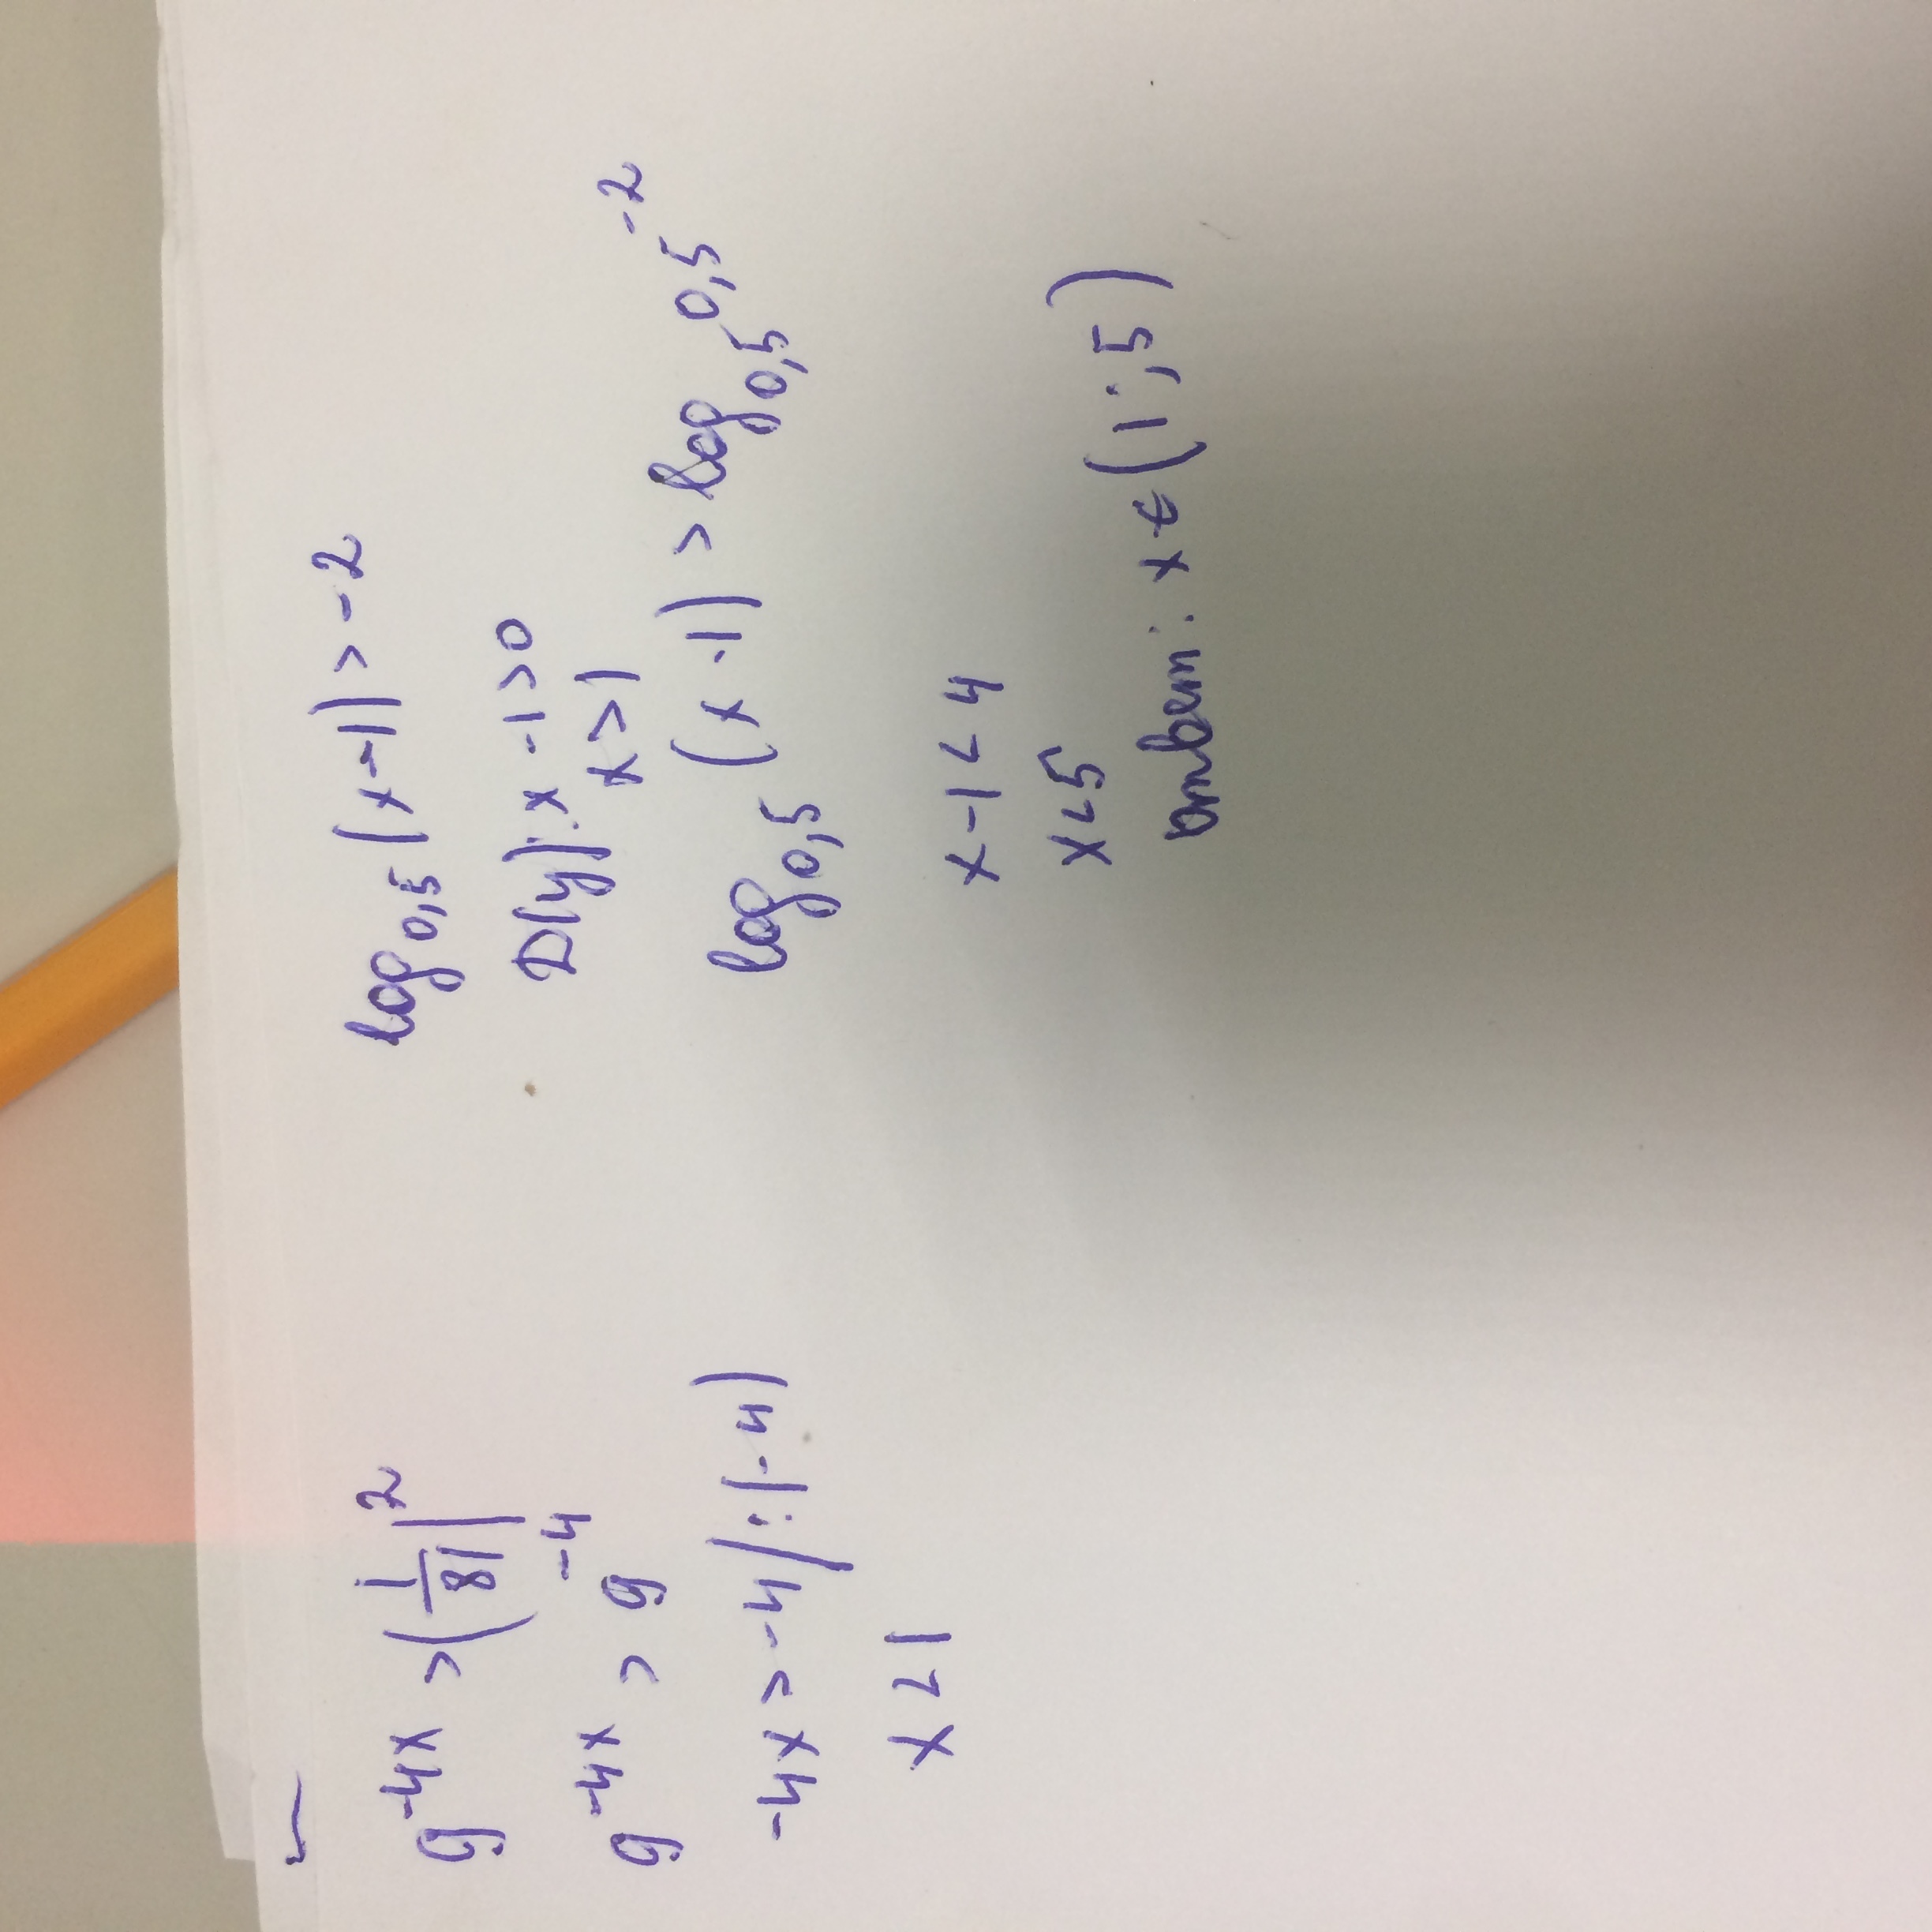 9^{-4x} > (1/81)^2
9^{-4x} > 9^{-4}
-4x > -4 /:(-4)
x < 1
log_{0,5} (x-1) > -2
D(y): x-1>0
x>1
log_{0,5} (x-1) > log_{0,5} 0,5^{-2}
x-1 < 4
x<5
x ∈ (1; 5)